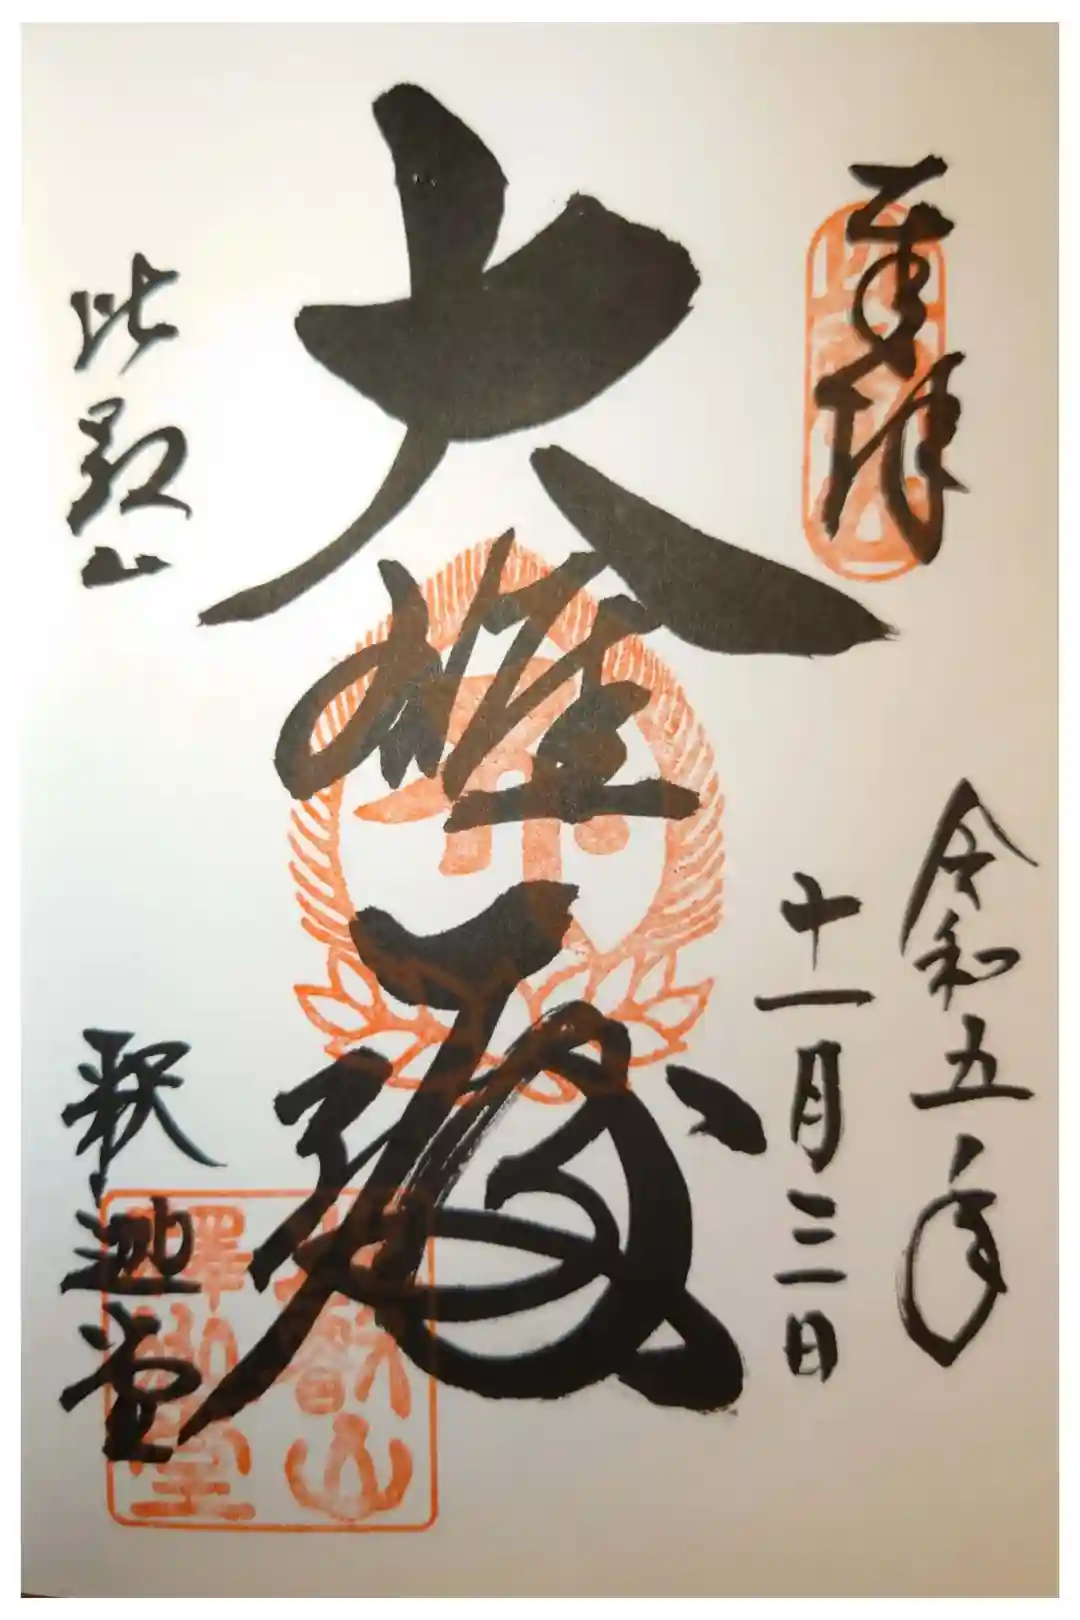 奉拝
令和五年
十一月三日
大雄殿
比叡山
釈迦堂
比叡山
釋迦堂